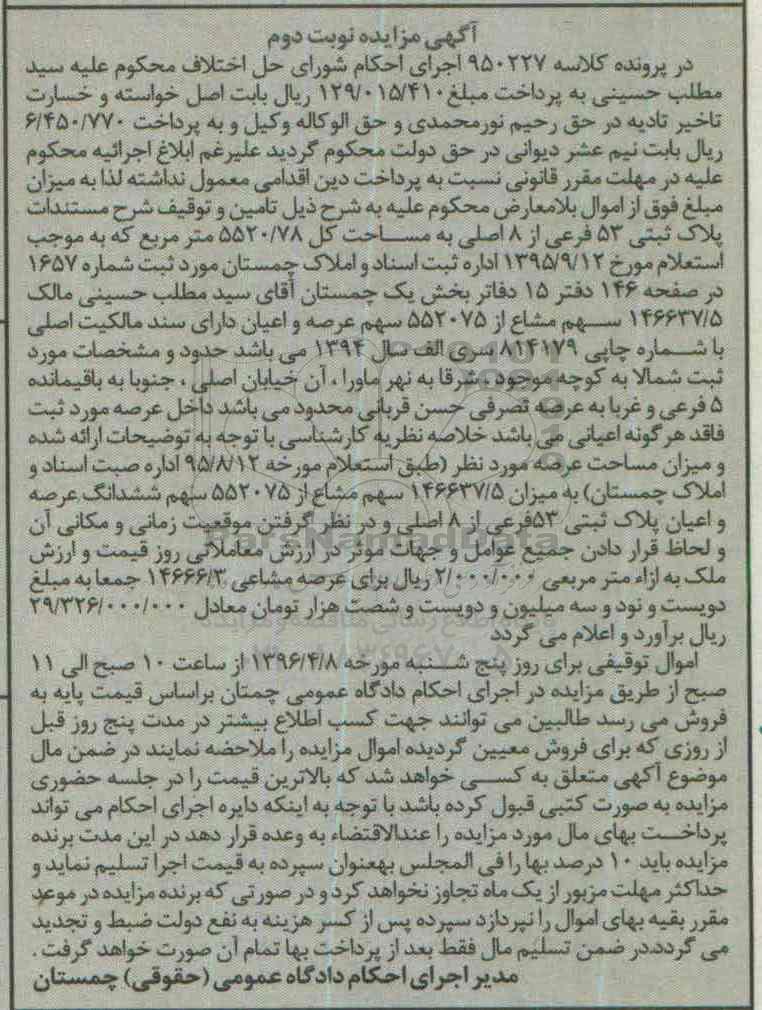 آگهی مزایده نوبت دوم
در پرونده کلاسه ۹۵۰۲۲۷ اجرای احکام شورای حل اختلاف محکوم علیه سید
مطلب حسینی به پرداخت مبلغ ۱۲۹/۰۱۵/۴۱۰ ریال بابت اصل خواسته و خسارت
تاخیر تادیه در حق رحیم نورمحمدی و حق الوکاله وکیل و به پرداخت ۶/۴۵۰/۷۷۰
ریال بابت نیم عشر دیوانی در حق دولت محکوم گردید علیرغم ابلاغ اجرائیه محکوم
علیه در مهلت مقرر قانونی نسبت به پرداخت دین اقدامی معمول نداشته لذا به میزان
مبلغ فوق از اموال بلامعارض محکوم علیه به شرح ذیل تامین و توقیف شرح مستندات
پلاک ثبتی ۵۳ فرعی از ۸ اصلی به مساحت کل ۵۵۲۰/۷۸ متر مربع که به موجب
استعلام مورخ ۱۳۹۵/۹/۱۲ اداره ثبت اسناد و املاک چمستان مورد ثبت شماره ۱۶۵۷
در صفحه ۱۴۶ دفتر ۱۵ دفاتر بخش یک چمستان آقای سید مطلب حسینی مالک
۱۴۶۶۳۷/۵ سهم مشاع از ۵۵۲۰۷۵ سهم عرصه و اعیان دارای سند مالکیت اصلی
با شماره چاپی ۸۱۴۱۷۹ سری الف سال ۱۳۹۴ می باشد حدود و مشخصات مورد
ثبت شمالا به کوچه موجود ، شرقا به نهر ماورا ، آن خیابان اصلی ، جنوبا به باقیمانده
۵ فرعی و غربا به عرصه تصرفی حسن قربانی محدود می باشد داخل عرصه مورد ثبت
فاقد هر گونه اعیانی می باشد خلاصه نظریه کارشناسی با توجه به توضیحات ارائه شده
و میزان مساحت عرصه مورد نظر (طبق استعلام مورخه ۹۵/۸/۱۲ اداره صبت اسناد و
املاک چمستان) به میزان ۱۴۶۶۳۷/۵ سهم مشاع از ۵۵۲۰۷۵ سهم ششدانگ عرصه
و اعیان پلاک ثبتی ۵۳فرعی از ۸ اصلی و در نظر گرفتن موقعیت زمانی و مکانی آن
و لحاظ قرار دادن جمیع عوامل و جهات موثر در ارزش معاملاتی روز قیمت و ارزش
ملک به ازاء متر مربعی ۲/۰۰۰/۰۰۰ ریال برای عرصه مشاعی ۱۴۶۶۶/۳ جمعا به مبلغ
دویست و نود و سه میلیون و دویست و شصت هزار تومان معادل ۲۹/۳۲۶/۰۰۰/۰۰۰
ریال برآورد و اعلام می گردد
اموال توقیفی برای روز پنج شنبه مورخه ۱۳۹۶/۴/۸ از ساعت ۱۰ صبح الی ۱۱
صبح از طریق مزایده در اجرای احکام دادگاه عمومی چمتان براساس قیمت پایه به
فروش می رسد طالبین می توانند جهت کسب اطلاع بیشتر در مدت پنج روز قبل
از روزی که برای فروش معیین گردیده اموال مزایده را ملاحضه نمایند در ضمن مال
موضوع آکهی متعلق به کسی خواهد شد که بالاترین قیمت را در جلسه حضوری
مزایده به صورت کتبی قبول کرده باشد با توجه به اینکه دایره اجرای احکام می تواند
پرداخت بهای مال مورد مزایده را عندالاقتضاء به وعده قرار دهد در این مدت برنده
مزایده باید ۱۰ درصد بها را فی المجلس بهعنوان سپرده به قیمت اجرا تسلیم نماید و
حداکثر مهلت مزبور از یک ماه تجاوز نخواهد کرد و در صورتی که برنده مزایده در موعد
مقرر بقیه بهای اموال را نپردازد سپرده پس از کسر هزینه به نفع دولت ضبط و تجدید
می گردد.در ضمن تسلیم مال فقط بعد از پرداخت بها تمام آن صورت خواهد گرفت .
مدیر اجرای احکام دادگاه عمومی (حقوقی) چمستان
ParsNamadData